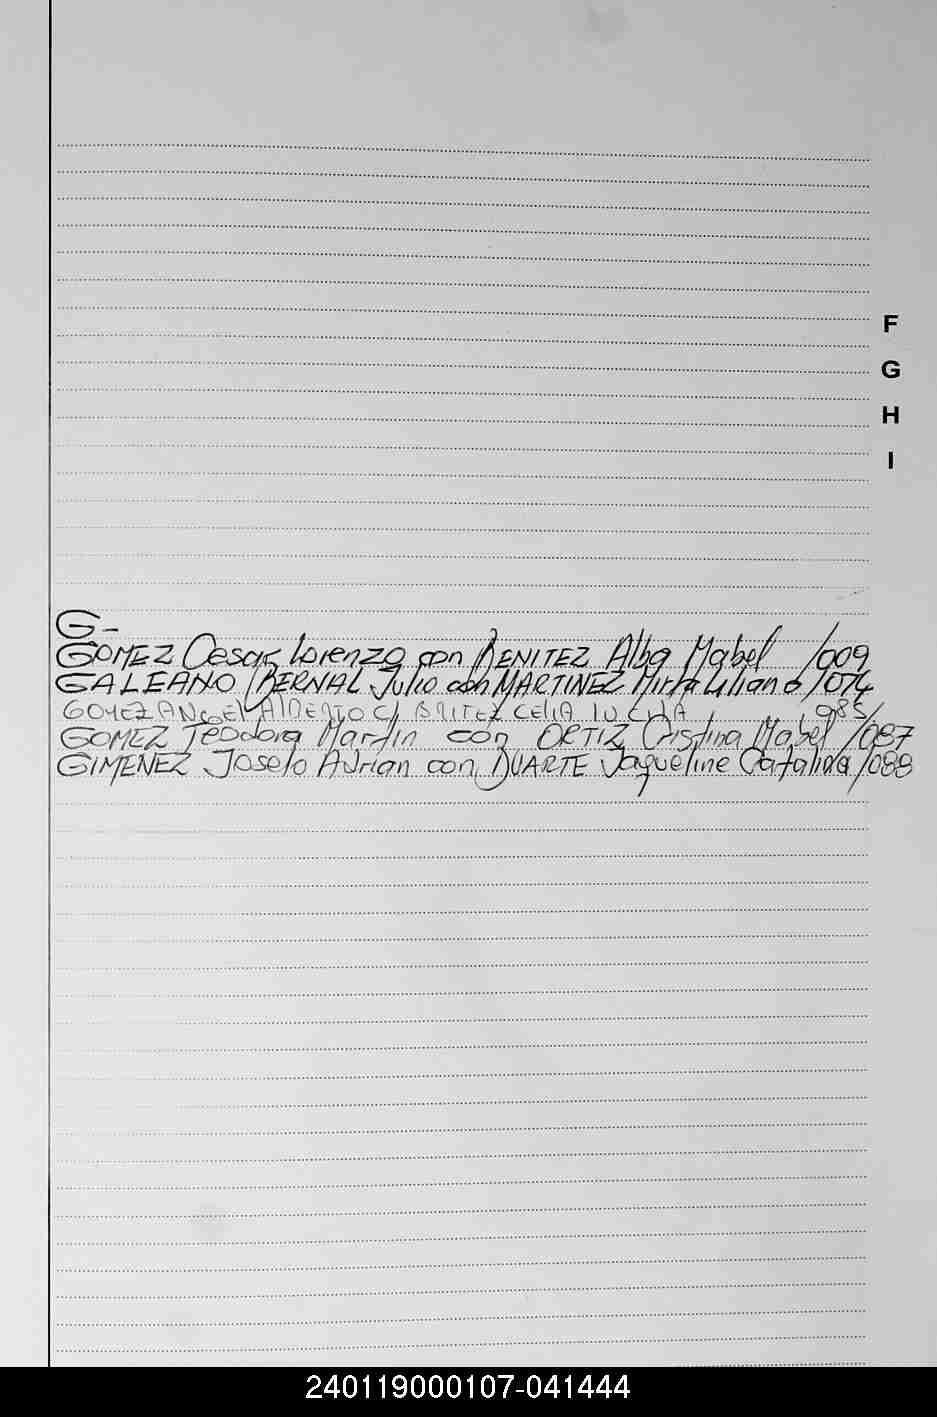 F
G
H
I
G-
GOMEZ Cesar Lorenzo con BENITEZ Alba Mabel /009
GALEANO BERNAL Julio con MARTINEZ Mirta Liliana /074
GOMEZ ANGEL ALBERTO C/ BRITEZ CELIA LUCILA /085
GOMEZ Teodoro Martin con ORTIZ Cristina Mabel /087
GIMENEZ Joselo Adrian con DUARTE Jaqueline Catalina /088
240119000107-041444